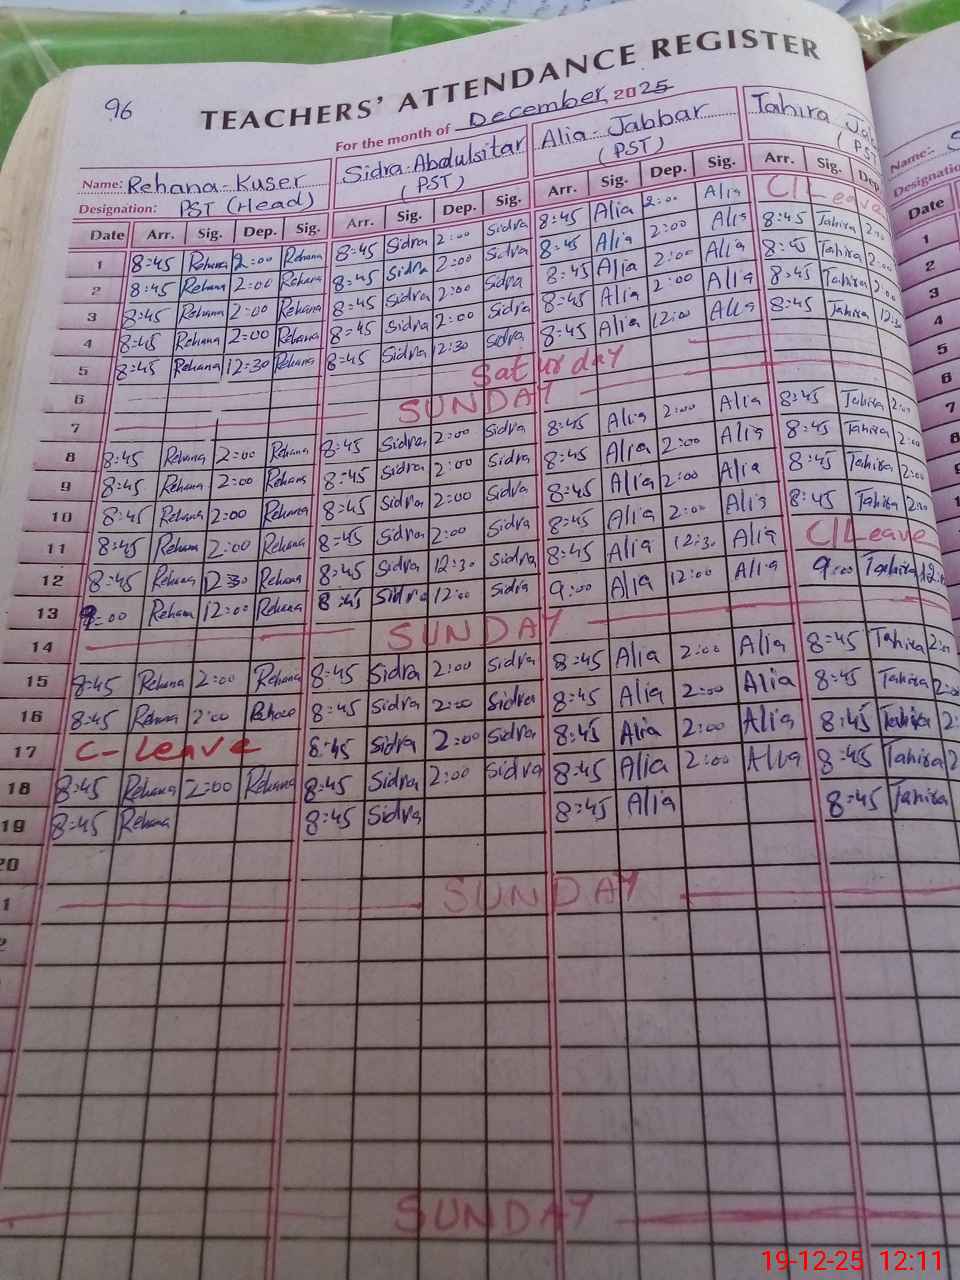 96
TEACHERS' ATTENDANCE REGISTER
For the month of December 2025
Name: Rehana-Kuser Sidra-Abdulsitar Alia-Jabbar Tahira
Designation: PST (Head) (PST) (PST) (PST
Date Arr. Sig. Dep. Sig. Arr. Sig. Dep. Sig. Arr. Sig. Dep. Sig. Arr. Sig. Dep.
1 8:45 Rehana 2:00 Rehana 8:45 Sidra 2:00 Sidra 8:45 Alia 2:00 Alia C/Leave
2 8:45 Rehana 2:00 Rehana 8:45 Sidra 2:00 Sidra 8:45 Alia 2:00 Alia 8:45 Tahira 2:00
3 8:45 Rehana 2:00 Rehana 8:45 Sidra 2:00 Sidra 8:45 Alia 2:00 Alia 8:45 Tahira 2:00
4 8:45 Rehana 2:00 Rehana 8:45 Sidra 2:00 Sidra 8:45 Alia 2:00 Alia 8:45 Tahira 2:00
5 8:45 Rehana 12:30 Rehana 8:45 Sidra 12:30 Sidra 8:45 Alia 12:00 Alia 8:45 Tahira
6 Saturday
7 SUNDAY
8 8:45 Rehana 2:00 Rehana 8:45 Sidra 2:00 Sidra 8:45 Alia 2:00 Alia 8:45 Tahira 2:00
9 8:45 Rehana 2:00 Rehana 8:45 Sidra 2:00 Sidra 8:45 Alia 2:00 Alia 8:45 Tahira 2:00
10 8:45 Rehana 2:00 Rehana 8:45 Sidra 2:00 Sidra 8:45 Alia 2:00 Alia 8:45 Tahira 2:00
11 8:45 Rehana 2:00 Rehana 8:45 Sidra 2:00 Sidra 8:45 Alia 2:00 Alia 8:45 Tahira 2:00
12 8:45 Rehana 12:30 Rehana 8:45 Sidra 12:30 Sidra 8:45 Alia 12:30 Alia C/Leave
13 9:00 Rehana 12:00 Rehana 8:45 Sidra 12:00 Sidra 9:00 Alia 12:00 Alia 9:00 Tahira
14 SUNDAY
15 8:45 Rehana 2:00 Rehana 8:45 Sidra 2:00 Sidra 8:45 Alia 2:00 Alia 8:45 Tahira 2:00
16 8:45 Rehana 2:00 Rehana 8:45 Sidra 2:00 Sidra 8:45 Alia 2:00 Alia 8:45 Tahira
17 C-Leave 8:45 Sidra 2:00 Sidra 8:45 Alia 2:00 Alia 8:45 Tahira
18 8:45 Rehana 2:00 Rehana 8:45 Sidra 2:00 Sidra 8:45 Alia 2:00 Alia 8:45 Tahira
19 8:45 Rehana 8:45 Sidra 8:45 Alia 8:45 Tahira
20
1 SUNDAY
2
SUNDAY
Name:
Designation
Date
1
2
3
4
5
6
7
8
19-12-25 12:11